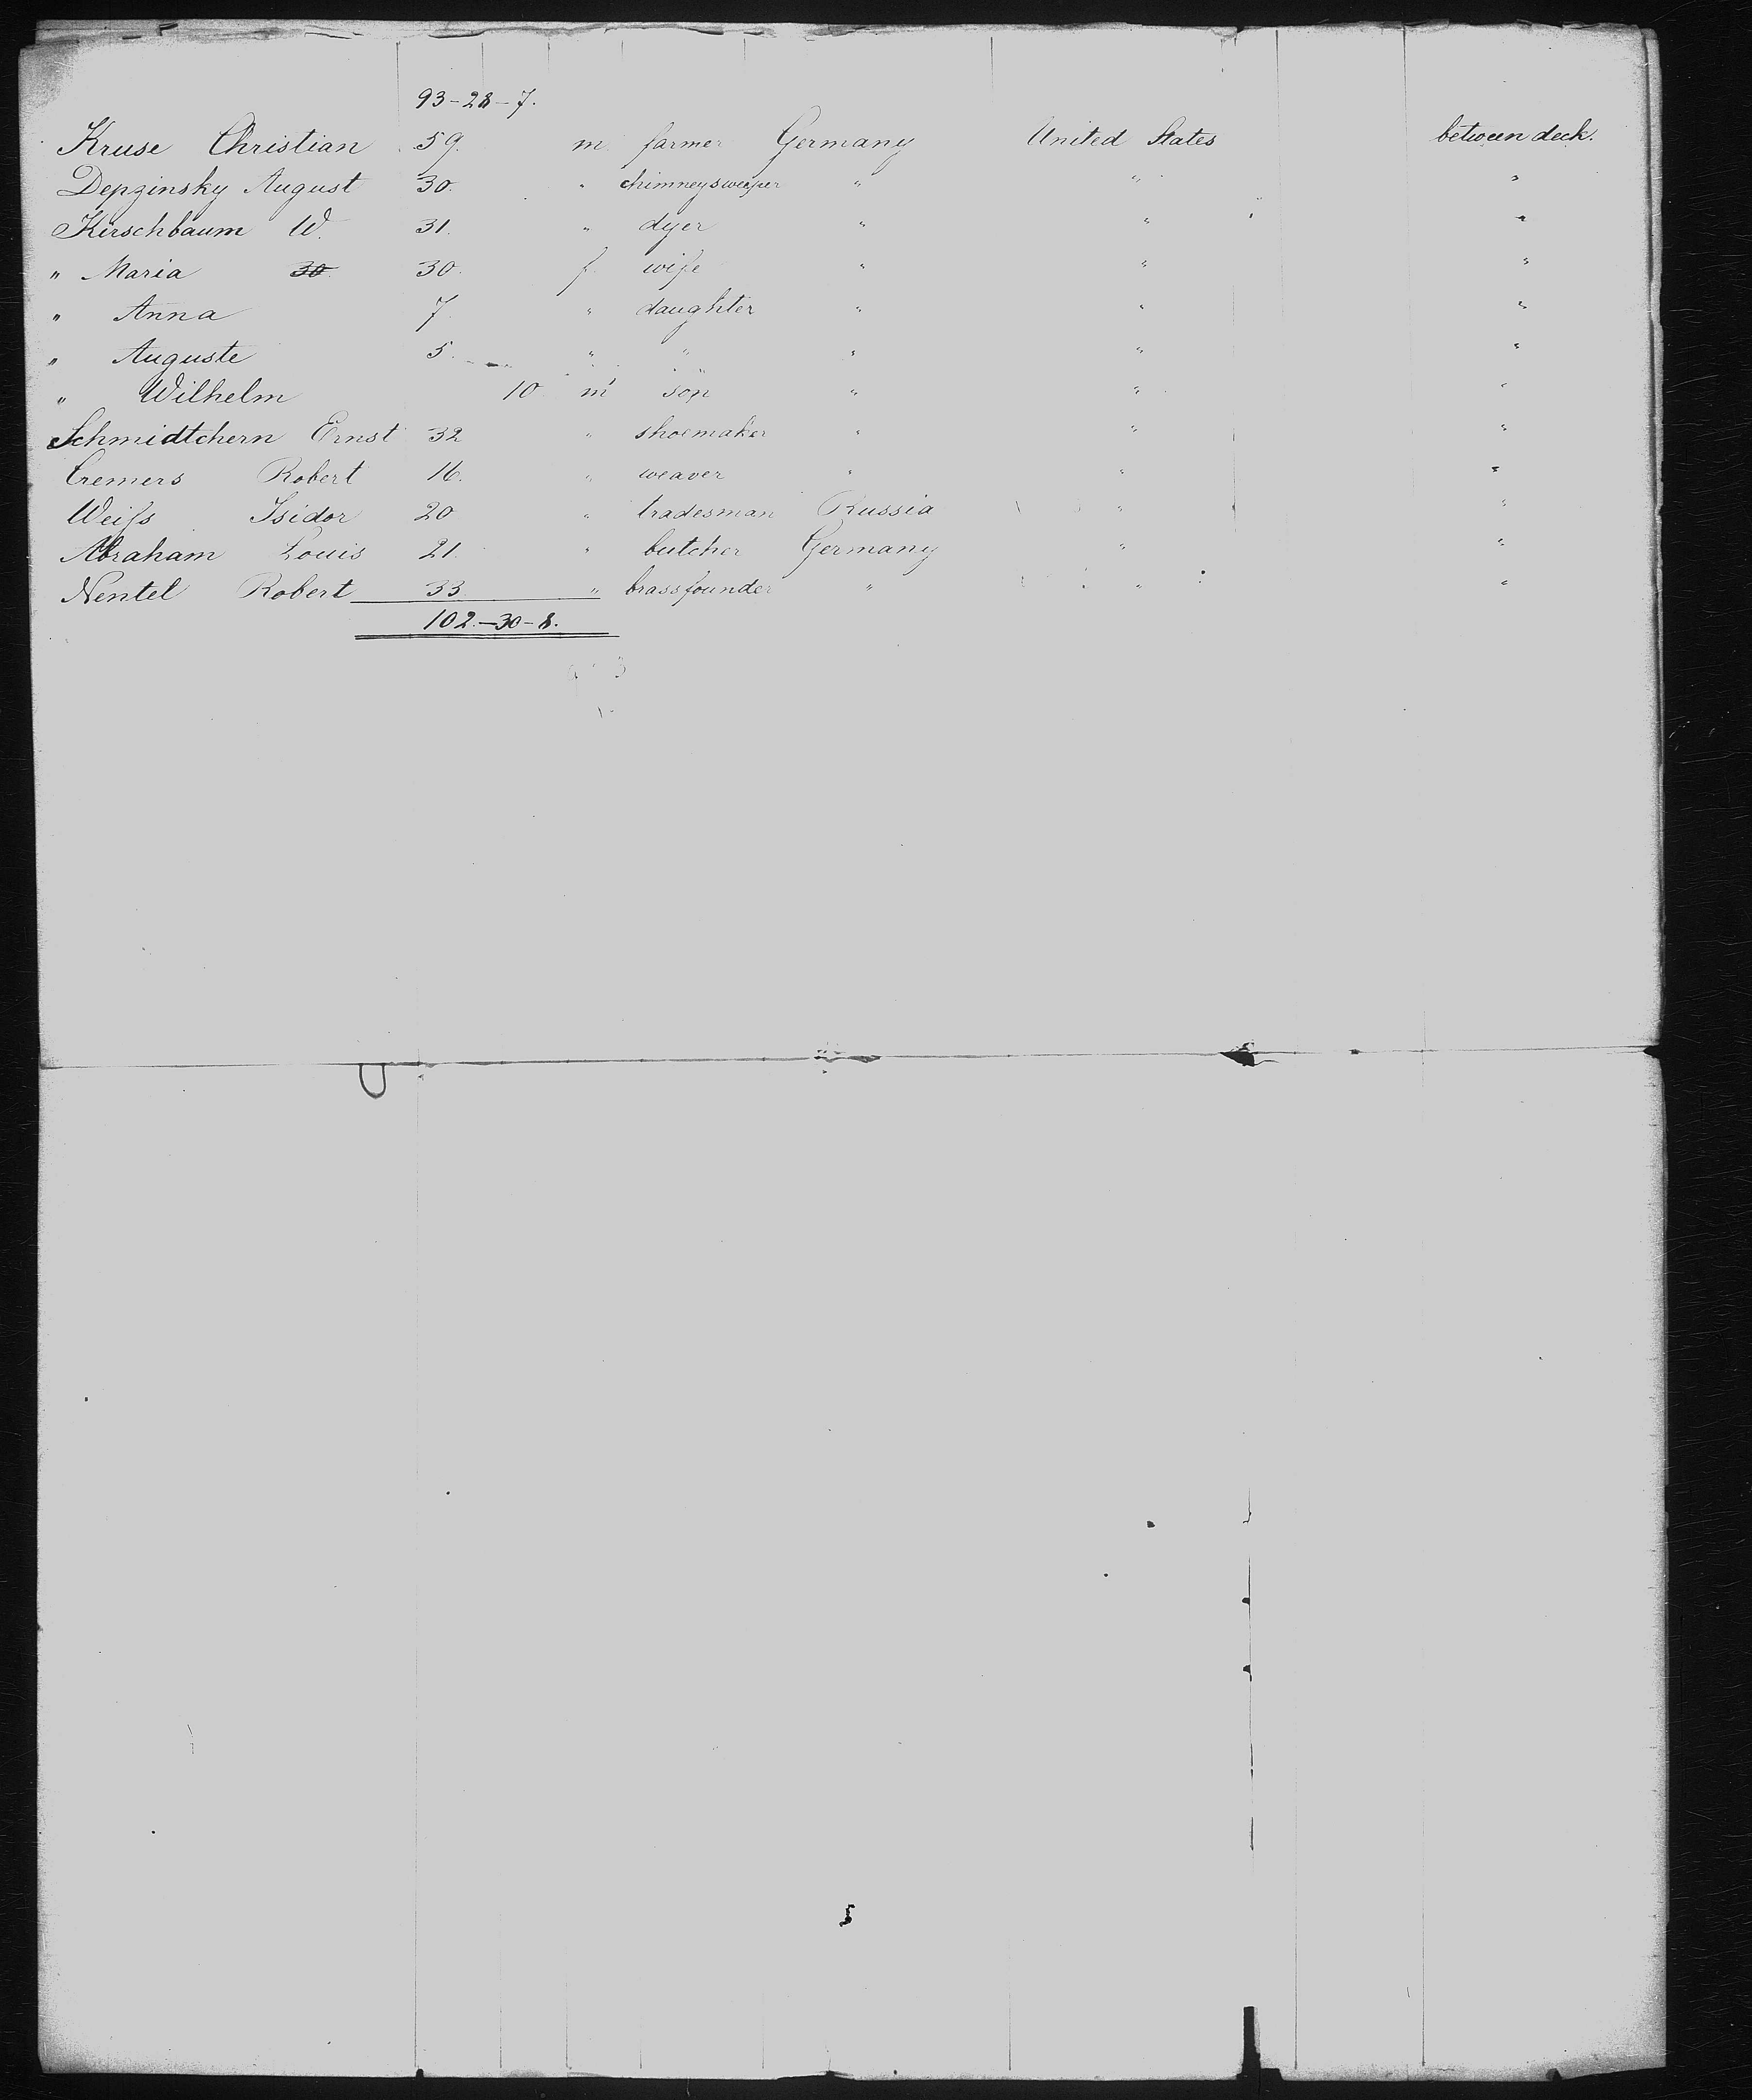 93-28-7.
Kruse Christian 59. m. farmer Germany United States between deck.
Depzinsky August 30. " chimneysweeper " " "
Kirschbaum W. 31. " dyer " " "
" Maria 30 30. f. wife " " "
" Anna 7. " daughter " " "
" Auguste 5. " " " " "
" Wilhelm 10 m son " " "
Schmidtchern Ernst 32 " shoemaker " " "
Cremers Robert 16. " weaver " " "
Weiſs Isidor 20 " tradesman Russia " "
Abraham Louis 21. " butcher Germany " "
Nentel Robert 33 " brassfounder " " "
102.-30-8.